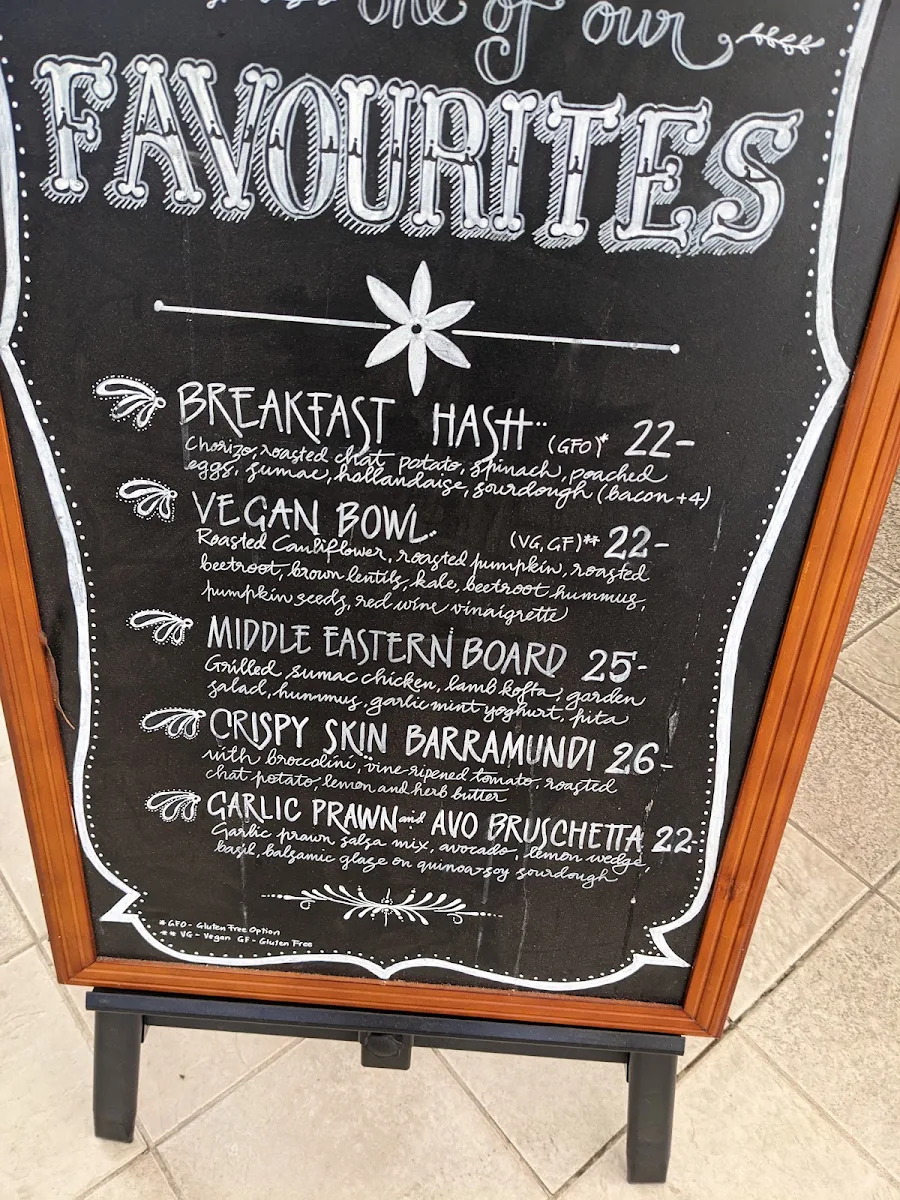 one of our
FAVOURITES
BREAKFAST HASH (GFO)* 22-
Chorizo, roasted chat potato, spinach, poached
eggs, sumac, hollandaise, sourdough (bacon +4)
VEGAN BOWL. (VG, GF)** 22-
Roasted Cauliflower, roasted pumpkin, roasted
beetroot, brown lentils, kale, beetroot hummus,
pumpkin seeds, red wine vinaigrette
MIDDLE EASTERN BOARD 25-
Grilled sumac chicken, lamb kofta, garden
salad, hummus, garlic mint yoghurt, pita
CRISPY SKIN BARRAMUNDI 26-
with broccolini, vine ripened tomato, roasted
chat potato, lemon and herb butter
GARLIC PRAWN and AVO BRUSCHETTA 22-
Garlic prawn salsa mix, avocado, lemon wedge,
basil, balsamic glaze on quinoa-soy sourdough
* GFO - Gluten Free Option
** VG - Vegan GF - Gluten Free